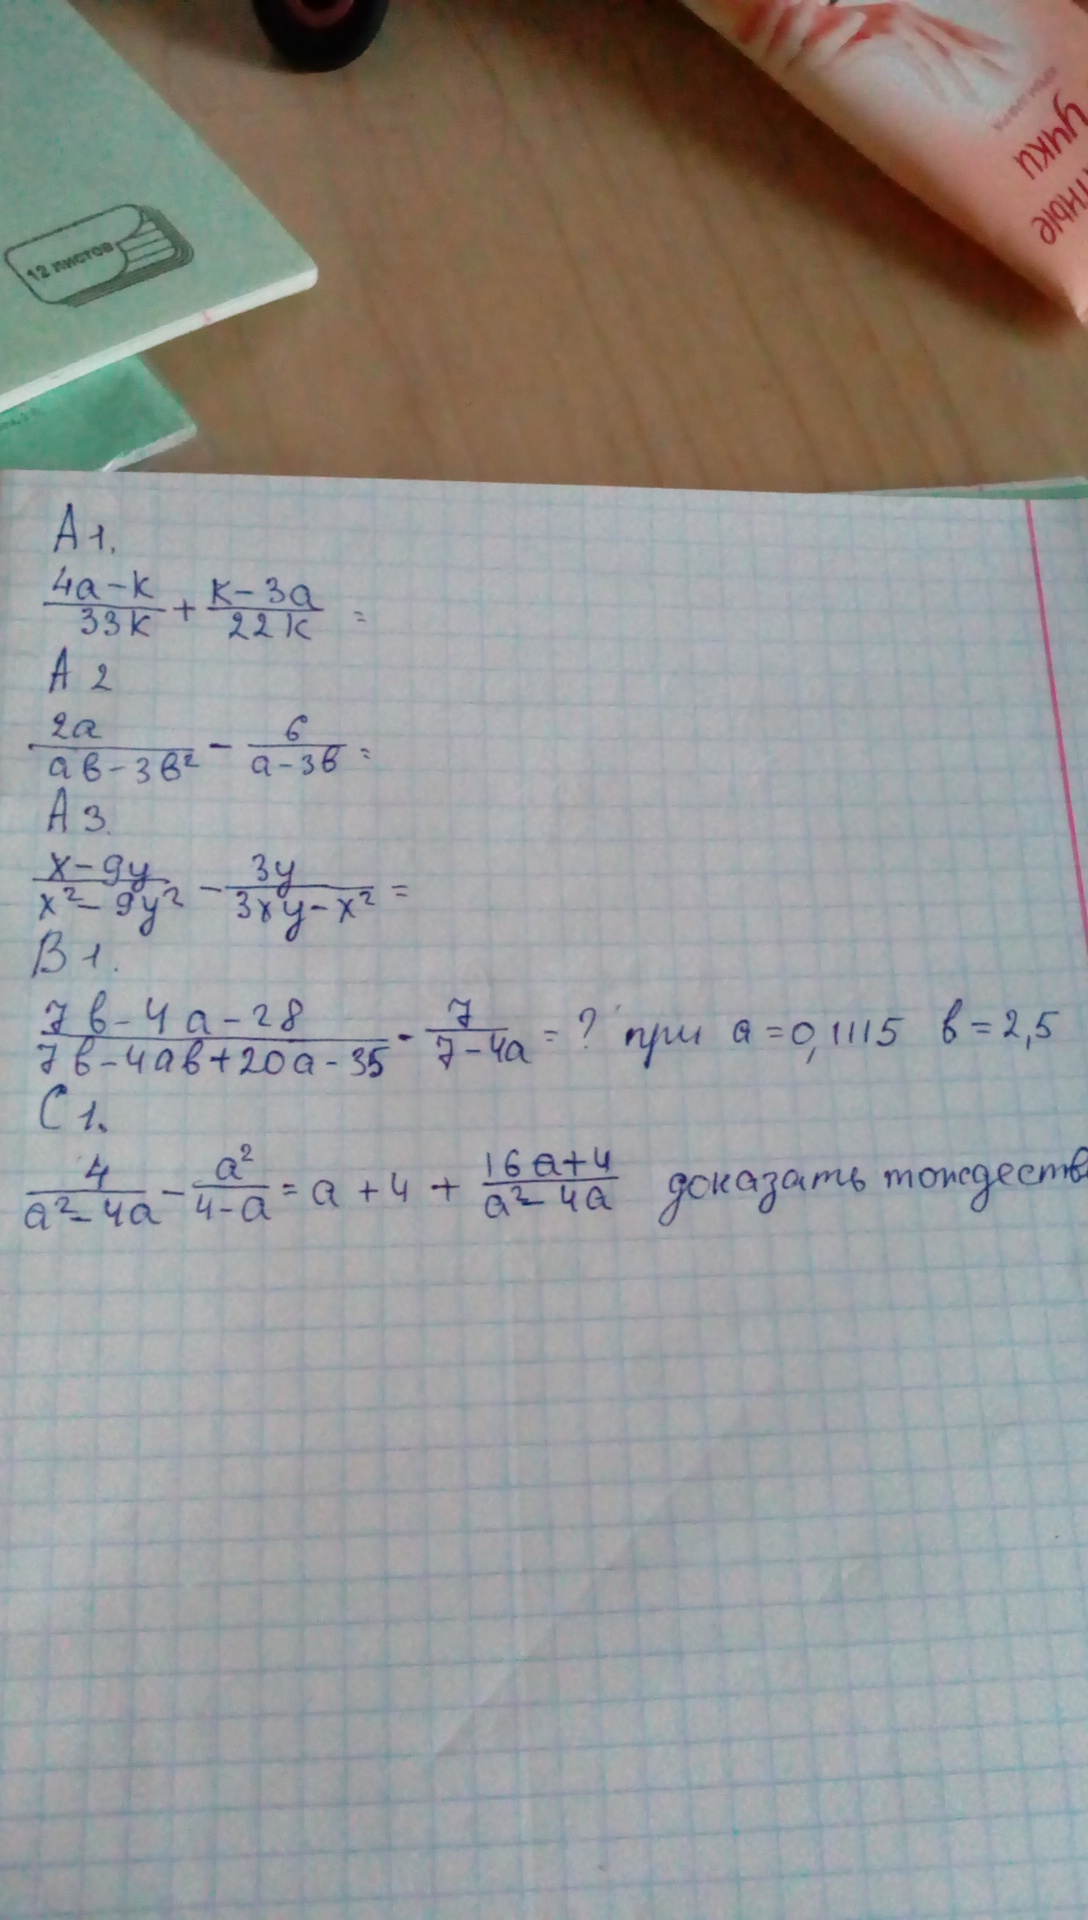 12 листов
учки
тные
А 1.
4a-k/33k + k-3a/22k =
А 2
2a/ab-3b² - 6/a-3b =
А 3.
x-9y/x²-9y² - 3y/3xy-x² =
В 1.
7b-4a-28/7b-4ab+20a-35 - 7/7-4a = ? при a=0,1115 b=2,5
С 1.
4/a²-4a - a²/4-a = a+4+ 16a+4/a²-4a доказать тождеств